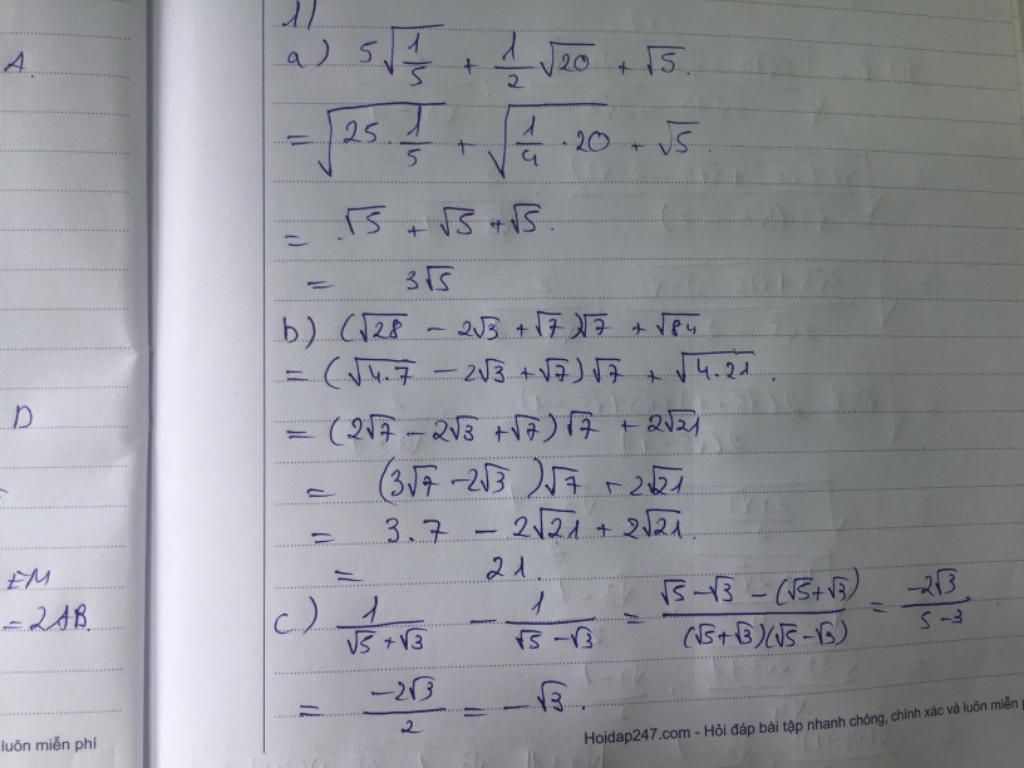 A.
D
EM
= 2AB.
luôn miễn phí
1)
a) 5√(1/5) + 1/2 √20 + √5.
= √(25 · 1/5) + √(1/4 · 20) + √5.
= √5 + √5 + √5.
= 3√5
b) (√28 - 2√3 + √7)√7 + √84
= (√4.7 - 2√3 + √7)√7 + √4.21.
= (2√7 - 2√3 + √7)√7 + 2√21
= (3√7 - 2√3)√7 + 2√21
= 3.7 - 2√21 + 2√21.
= 21.
c) 1/(√5 + √3) - 1/(√5 - √3) = (√5 - √3 - (√5 + √3))/((√5 + √3)(√5 - √3)) = -2√3/(5-3)
= -2√3/2 = -√3.
Hoidap247.com - Hỏi đáp bài tập nhanh chóng, chính xác và luôn miễn